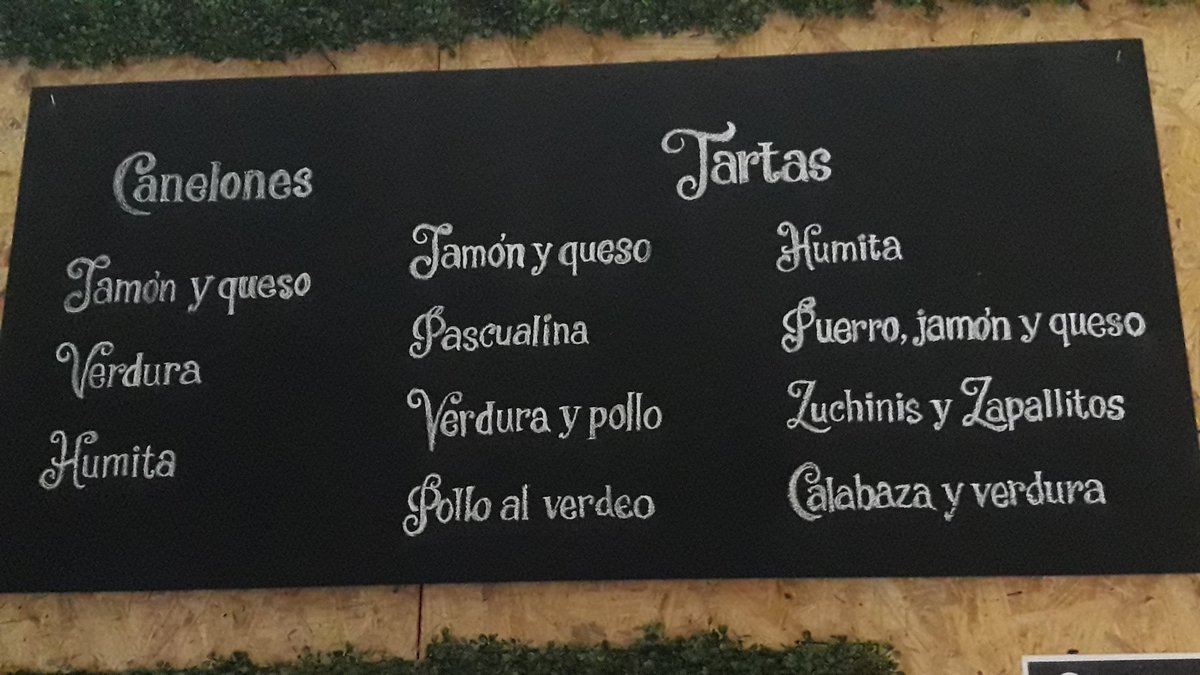 Canelones
Jamón y queso
Verdura
Humita
Tartas
Jamón y queso
Pascualina
Verdura y pollo
Pollo al verdeo
Humita
Puerro, jamón y queso
Zuchinis y Zapallitos
Calabaza y verdura